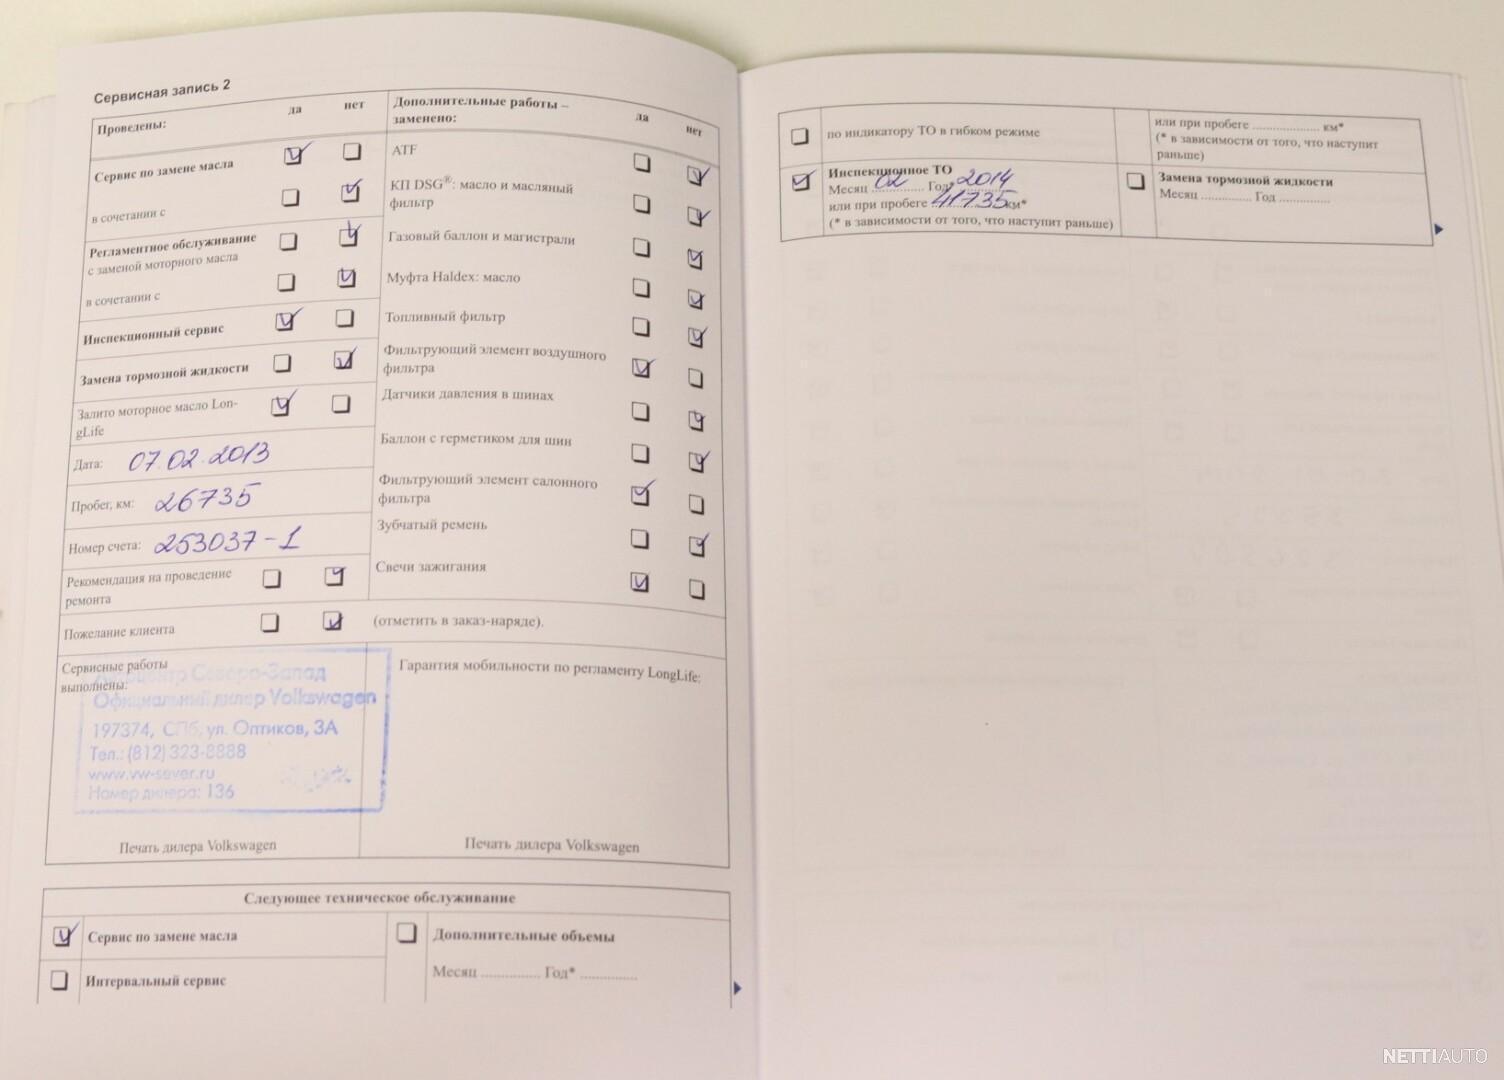 Сервисная запись 2
Проведены:
да
нет
Сервис по замене масла
в сочетании с
Регламентное обслуживание
с заменой моторного масла
в сочетании с
Инспекционный сервис
Замена тормозной жидкости
Залито моторное масло Lon-
gLife
Дата: 07.02.2013
Пробег, км: 26735
Номер счета: 253037-1
Рекомендация на проведение
ремонта
Пожелание клиента
(отметить в заказ-наряде).
Дополнительные работы –
заменено:
да
нет
ATF
КП DSG®: масло и масляный
фильтр
Газовый баллон и магистрали
Муфта Haldex: масло
Топливный фильтр
Фильтрующий элемент воздушного
фильтра
Датчики давления в шинах
Баллон с герметиком для шин
Фильтрующий элемент салонного
фильтра
Зубчатый ремень
Свечи зажигания
Сервисные работы
выполнены:
Автоцентр Северо-Запад
Официальный дилер Volkswagen
197374, СПб, ул. Оптиков, 3А
Тел.: (812) 323-8888
www.vw-sever.ru
Номер дилера: 136
Печать дилера Volkswagen
Гарантия мобильности по регламенту LongLife:
Печать дилера Volkswagen
Следующее техническое обслуживание
Сервис по замене масла
Интервальный сервис
Дополнительные объемы
Месяц .............. Год* .............
по индикатору ТО в гибком режиме
или при пробеге ................ км*
(* в зависимости от того, что наступит
раньше)
Инспекционное ТО
Месяц 02 Год* 2014
или при пробеге 41735 км*
(* в зависимости от того, что наступит раньше)
Замена тормозной жидкости
Месяц ............. Год .............
NETTIAUTO